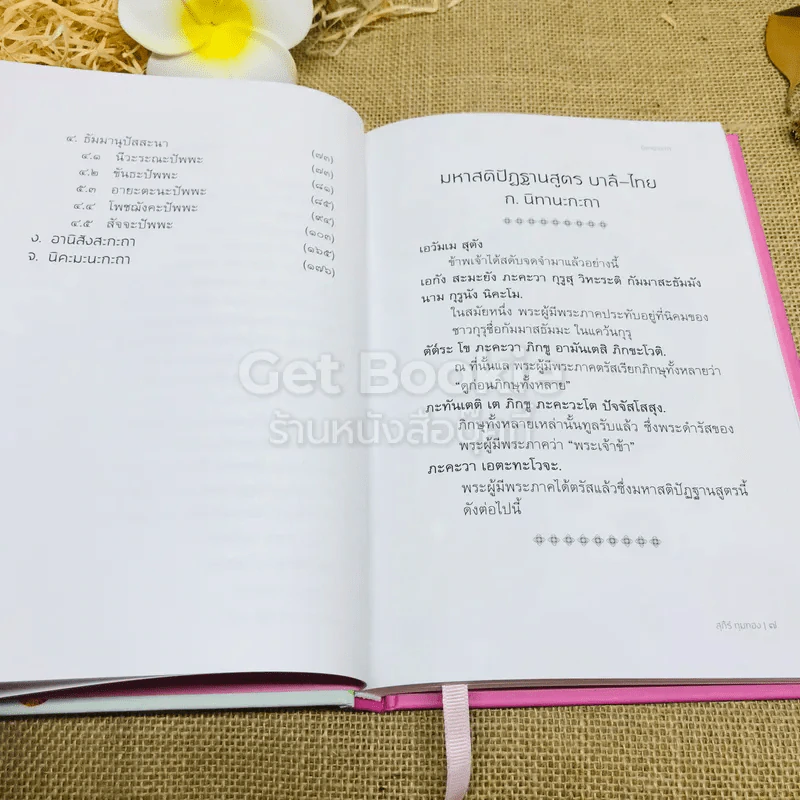 ๔. ธัมมานุปัสสะนา (๗๓)
๔.๑ นีวะระณะปัพพะ (๗๓)
๔.๒ ขันธะปัพพะ (๘๑)
๕.๓ อายะตะนะปัพพะ (๘๕)
๔.๔ โพชฌังคะปัพพะ (๙๔)
๔.๕ สัจจะปัพพะ (๑๐๓)
ง. อานิสังสะกะถา (๑๖๕)
จ. นิคะมะนะกะถา (๑๗๖)
มหาสติปัฏฐานสูตร บาลี–ไทย
ก. นิทานะกะถา
เอวัมเม สุตัง
ข้าพเจ้าได้สดับจดจำมาแล้วอย่างนี้
เอกัง สะมะยัง ภะคะวา กุรูสุ วิหะระติ กัมมาสะธัมมัง
นาม กุรูนัง นิคะโม.
ในสมัยหนึ่ง พระผู้มีพระภาคประทับอยู่ที่นิคมของ
ชาวกุรุชื่อกัมมาสธัมมะ ในแคว้นกุรุ
ตัต๎ระ โข ภะคะวา ภิกขู อามันเตสิ ภิกขะโวติ.
ณ ที่นั้นแล พระผู้มีพระภาคตรัสเรียกภิกษุทั้งหลายว่า
“ดูก่อนภิกษุทั้งหลาย”
ภะทันเตติ เต ภิกขู ภะคะวะโต ปัจจัสโสสุง.
ภิกษุทั้งหลายเหล่านั้นทูลรับแล้ว ซึ่งพระดำรัสของ
พระผู้มีพระภาคว่า “พระเจ้าข้า”
ภะคะวา เอตะทะโวจะ.
พระผู้มีพระภาคได้ตรัสแล้วซึ่งมหาสติปัฏฐานสูตรนี้
ดังต่อไปนี้
สุภีร์ ทุมทอง | ๗
Get Bookie
ร้านหนังสือบุ๊คกี้